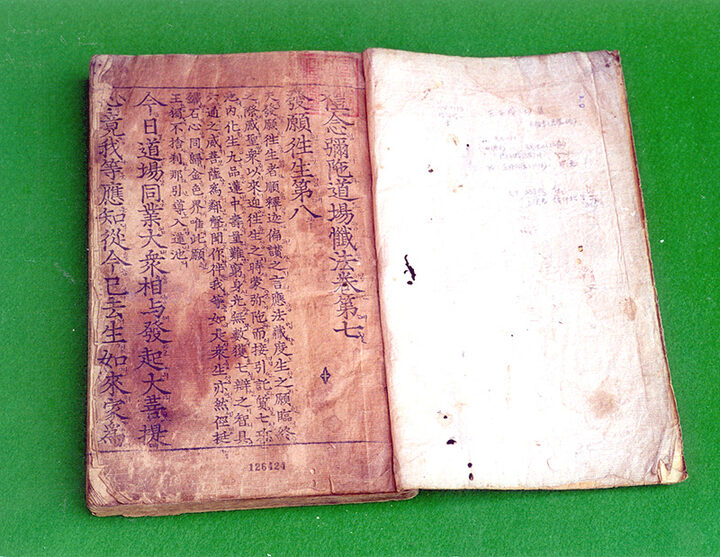 禮念彌陁道場懺法卷第七
發願徃生第八
夫發願徃生者順釋迦偈讃之言應法藏度生之願臨終
之際感聖衆以來迎徃生之時蒙弥陁而接引託質七珎
池内化生九品蓮中壽量難窮身光無數獲七辯之智具
六通之威菩薩爲鄰聲聞作伴我等如是衆生亦然但挺
鐵石心同歸金色界唯此願
王獨不捨刹那引導入蓮池
今日道場同業大衆相与發起大菩提
心竟我等應知從今已去生如來家爲
126424